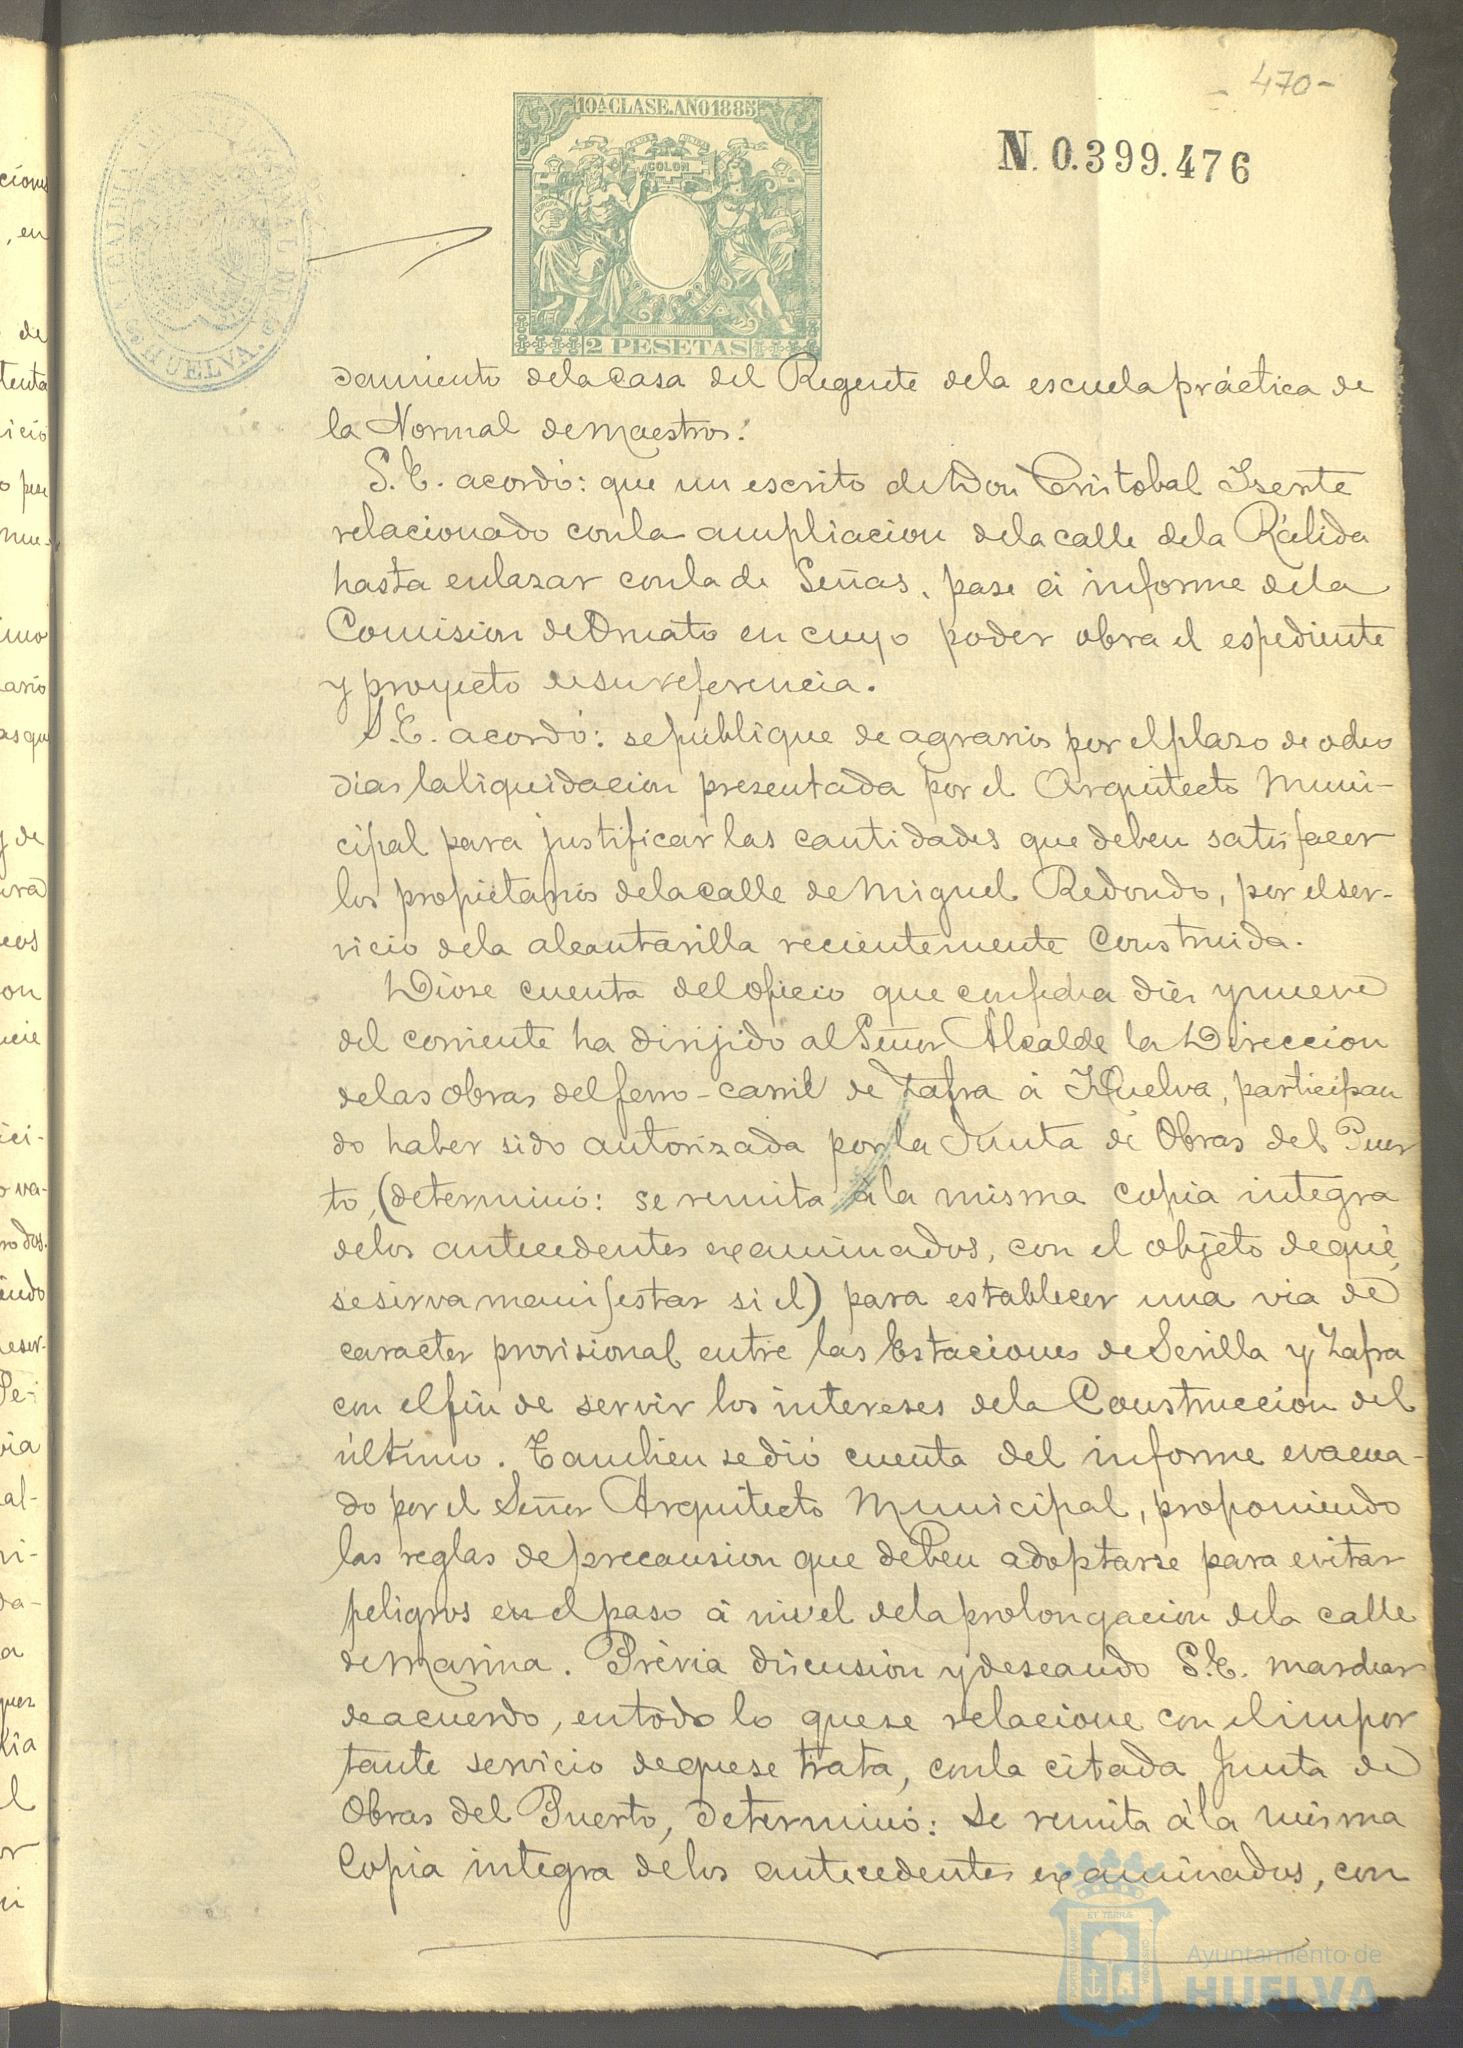 470-
10ª CLASE. AÑO 1885
COLON
EUROPA
2 PESETAS
N. 0.399.476
HUELVA.
damiento dela casa del Regente dela escuela práctica de
la Normal de Maestros.
S.E. acordó: que un escrito de Don Cristobal Isente
relacionado conla ampliacion dela calle dela Rábida
hasta enlazar conla de Señas, pase á informe dela
Comision de Ornato en cuyo poder obra el espediente
y proyecto desu referencia.
S.E. acordó: se publique de agravios por el plazo de ocho
dias la liquidacion presentada por el Arquitecto Muni-
cipal para justificar las cantidades que deben satisfacer
los propietarios dela calle de Miguel Redondo, por el ser-
vicio dela alcantarilla recientemente construida.
Diose cuenta del oficio que confecha diez y nueve
del corriente ha dirijido al Señor Alcalde la Direccion
delas obras del ferro-carril de Zafra á Huelva, participan
do haber sido autorizada por la Junta de Obras del Puer
to, (determinó: se remita á la misma copia integra
delos antecedentes examinados, con el objeto de que
se sirva manifestar si el) para establecer una via de
caracter provisional entre las Estaciones de Sevilla y Zafra
con el fin de servir los intereses dela Construccion del
último. Tambien se dió cuenta del informe evacua-
do por el Señor Arquitecto Municipal, proponiendo
las reglas de precausion que deben adoptarse para evitar
peligros en el paso á nivel dela prolongacion dela calle
de Marina. Prévia discusion y deseando S.E. marchar
de acuerdo, en todo lo que se relacione con el impor
tante servicio de que se trata, conla citada Junta de
Obras del Puerto, determinó: Se remita á la misma
Copia integra delos antecedentes examinados, con
Ayuntamiento de
HUELVA